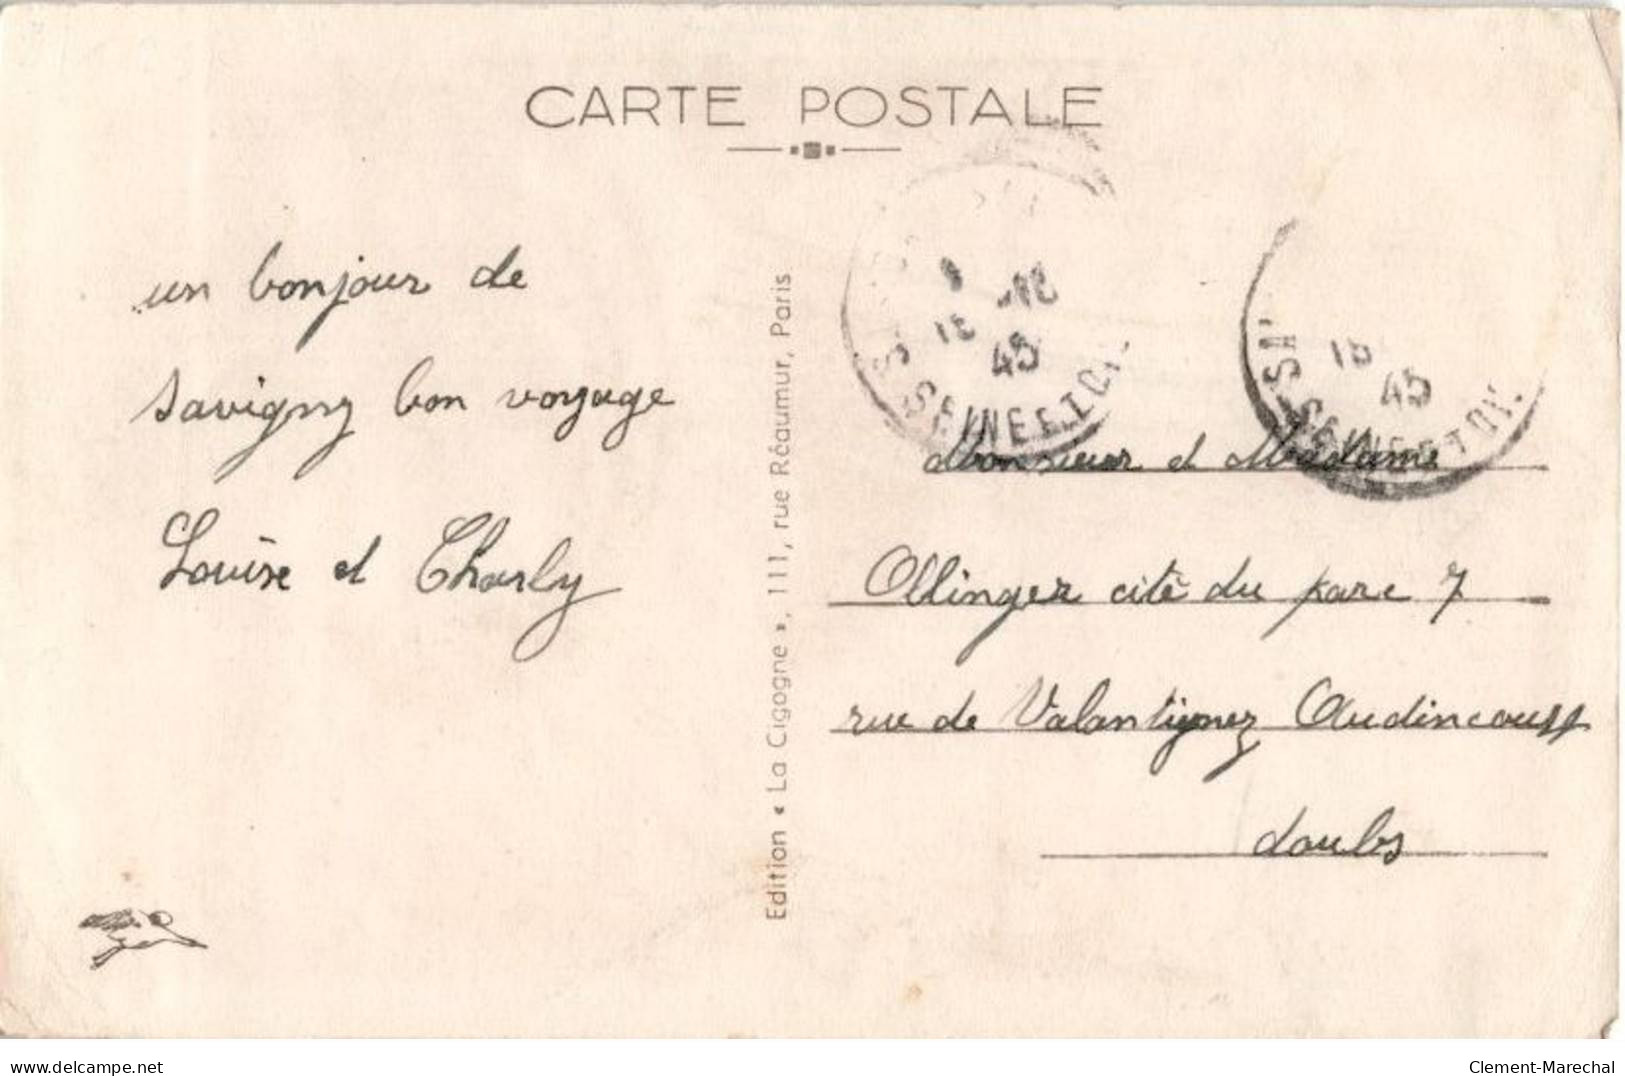 CARTE POSTALE
un bonjour de
savigny bon voyage
Louise et Charly
Edition « La Cigogne », 111, rue Réaumur, Paris
18
45
SEINE ET O
18
45
SEINE ET O
Monsieur et Madame
Ollinger cité du parc 7
rue de Valantigney Audincourt
doubs
delcampe.net
Clement-Marechal